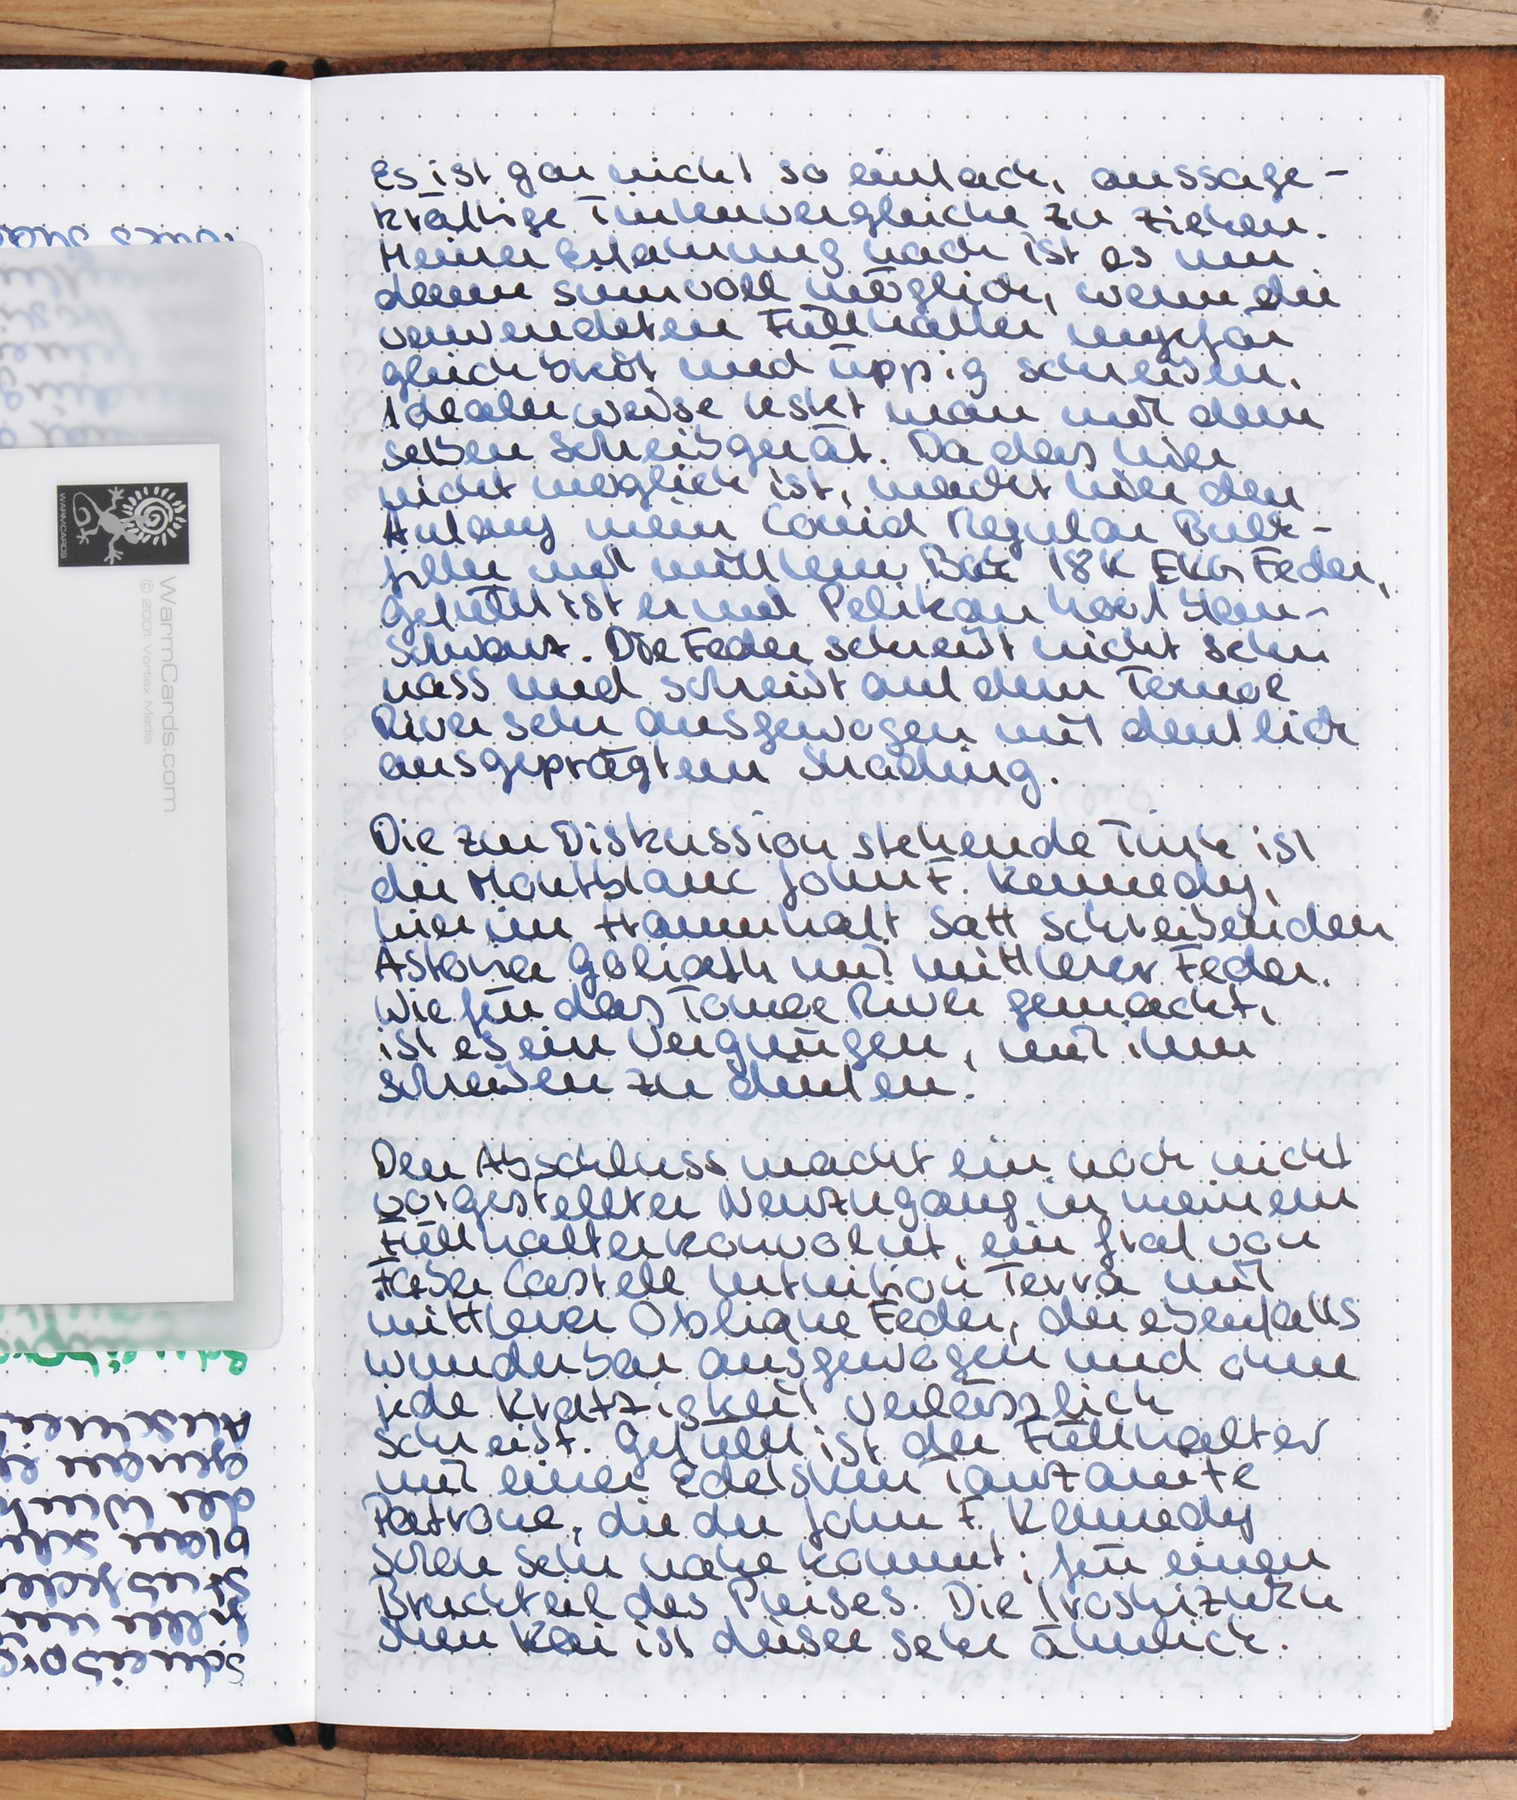 Es ist gar nicht so einfach, aussage-
kräftige Tintenvergleiche zu ziehen.
Meiner Erfahrung nach ist es nur
dann sinnvoll möglich, wenn die
verwendeten Füllhalter ungefähr
gleich breit und üppig schreiben.
Idealerweise testet man mit dem
selben Schreibgerät. Da das hier
nicht möglich ist, macht hier den
Anfang mein Conid Regular Bulk-
filler mit mittlerer 18K Feder,
gefüllt ist er mit Pelikan
schwarz. Die Feder schreibt nicht sehr
nass und schreibt auf dem Tomoe
River sehr ausgewogen mit deutlich
ausgeprägtem Shading.
Die zur Diskussion stehende Tinte ist
die Montblanc John F. Kennedy,
hier im traumhaft satt schreibenden
Astoria Goliath mit mittlerer Feder.
Wie für das Tomoe River gemacht,
ist es ein Vergnügen, mit ihm
schreiben zu dürfen.
Den Abschluss macht ein noch nicht
vorgestellter Neuzugang in meinem
Füllhalterkonvolut, ein Graf von
Faber Castell Intuition Terra mit
mittlerer Oblique Feder, der ebenfalls
wunderbar ausgewogen und ohne
jede Kratzigkeit verlässlich
schreibt. Gefüllt ist der Füllhalter
mit einer Edelstein Tanzanite
Patrone, die der John F. Kennedy
schon sehr nahe kommt; für einen
Bruchteil des Preises. Die Iroshizuku
shin kai ist dieser sehr ähnlich.
WARMCARDS
WarmCards.com
© 2001 Vortex Media